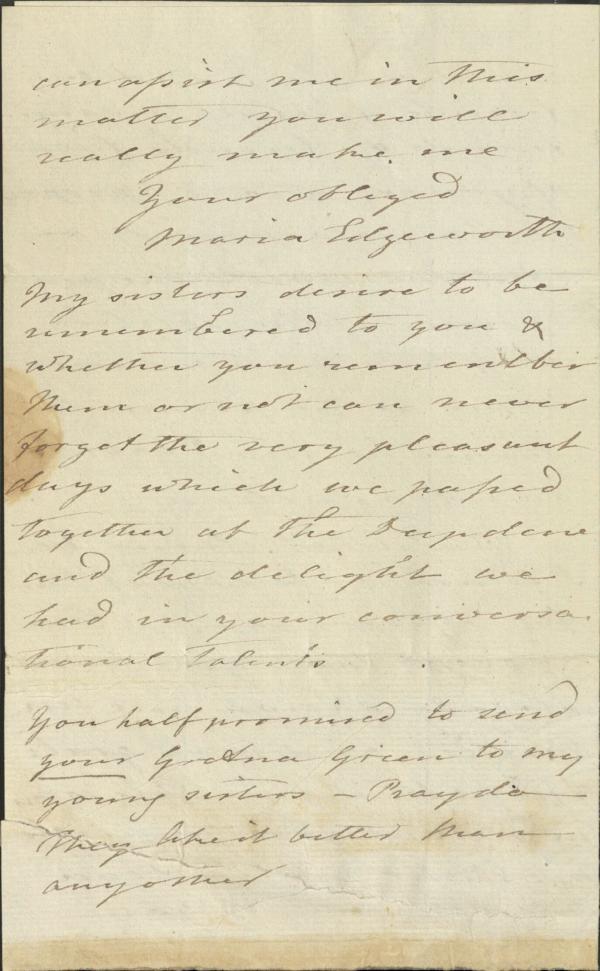 can assist me in this
matter you will
really make me
Your obliged
Maria Edgeworth
My sisters desire to be
remembered to you &
whether you remember
them or not can never
forget the very pleasant
days which we passed
together at the Deepdene
and the delight we
had in your conversa
tional talents
You half promised to send
your Gretna Green to my
young sisters – Pray do
They like it better than
any other